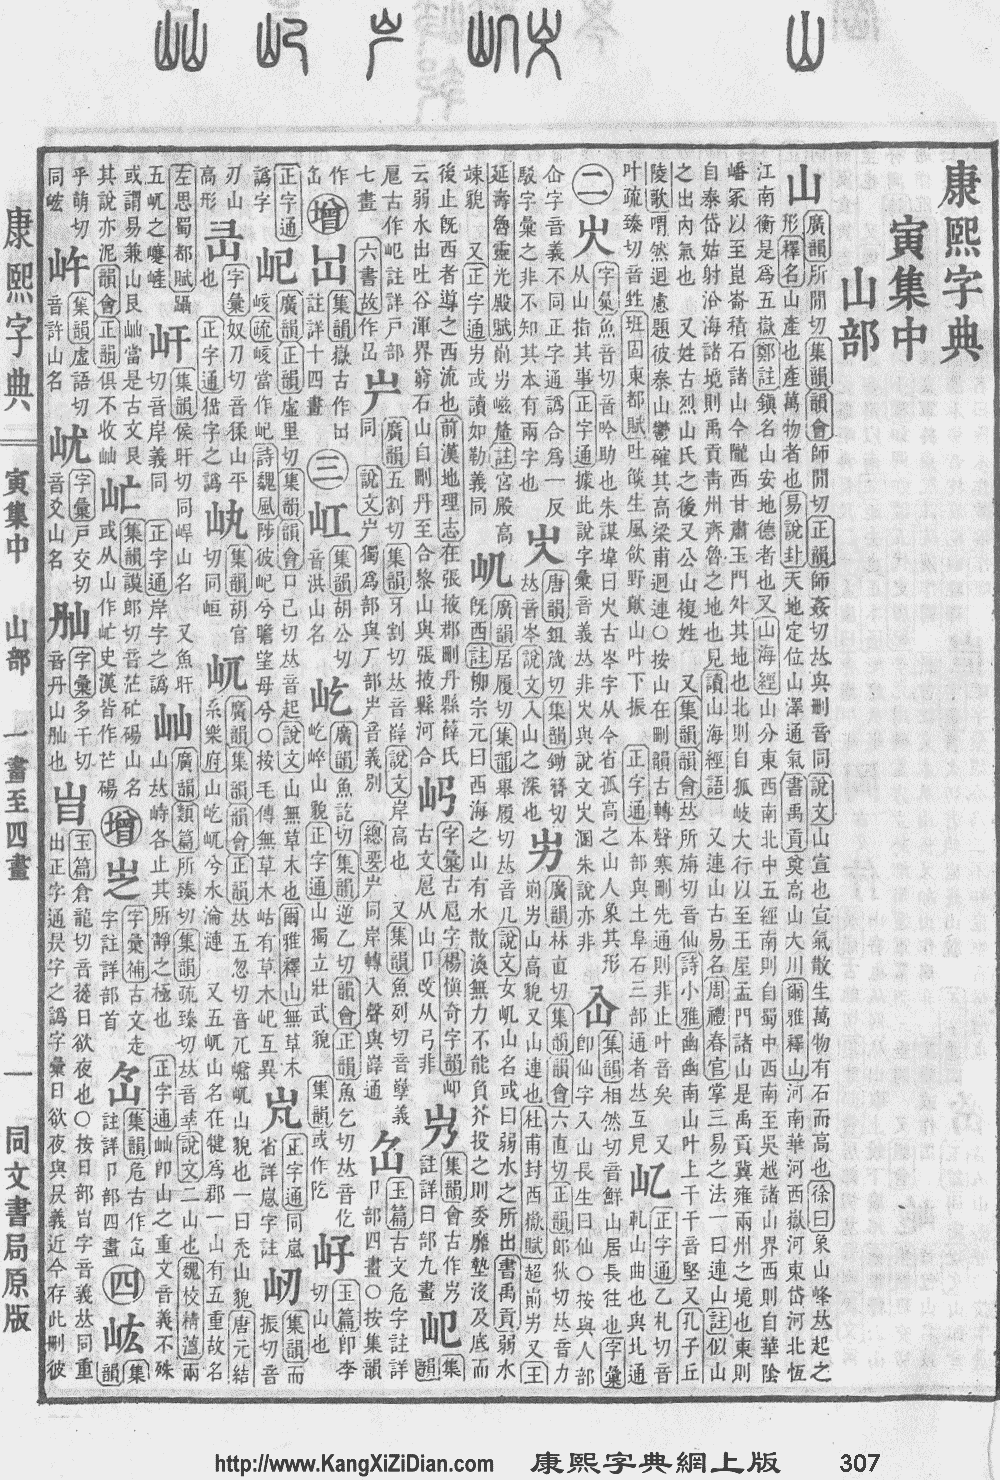 山
康熙字典
寅集中
山部
山 廣韻所閒切集韻韻會師閒切正韻師姦切𠀤與刪音同說文山宣也宣氣散生萬物有石而高也徐曰象山峰𠀤起之
形釋名山產也產萬物者也易說卦天地定位山澤通氣書禹貢奠高山大川爾雅釋山河南華河西嶽河東岱河北恆
江南衡是爲五嶽鄭註鎭名山安地德者也又山海經山分東西南北中五經南則自蜀中西南至吳越諸山界西則自華陰
嶓冢以至崑崙積石諸山今隴西甘肅玉門外其地也北則自狐岐大行以至王屋孟門諸山是禹貢冀雍兩州之境也東則
自泰岱姑射沿海諸境則禹貢靑州齊魯之地也見讀山海經語 又連山古易名周禮春官掌三易之法一曰連山註似山
之出內氣也 又姓古烈山氏之後又公山複姓 又集韻韻會𠀤所旃切音仙詩小雅幽幽南山叶上干干音堅又孔子丘
陵歌喟然迴慮題彼泰山鬱確其高梁甫迴連○按山在刪韻古轉聲寒刪先通則非止叶音矣 又
叶疏臻切音甡班固東都賦吐燄生風欱野歕山叶下振 正字通本部與土阜石三部通者𠀤互見
正字通乙札切音
軋山山曲也與圠通
二
字彙魚音切音吟助也朱謀㙔曰火古岑字从人今省孤高之山人象其形
从山指其事正字通據此說字彙音義𠀤非
集韻相然切音鮮山居長往也字彙
卽仙字入山長生曰仙○按與人部
仚字音義不同正字通譌合爲一反
駁字彙之非不知其本有兩字也
唐韻鉏箴切集韻鋤簪切
𠀤音岑說文入山之深也
屴 廣韻林直切集韻韻會六直切正韻郞狄切𠀤音力
崱屴山高貌又山連也杜甫封西嶽賦超崱屴又王
延壽魯靈光殿賦崱屴嵫釐註宮殿高
竦貌 又正字通屴或讀如勒義同
屼 廣韻居履切集韻舉履切𠀤音几說文女屼山名或曰弱水之所出書禹貢弱水
旣西註柳宗元曰西海之山有水散渙無力不能負芥投之則委靡墊沒及底而
後止旣西者導之西流也前漢地理志在張掖郡刪丹縣薛氏
云弱水出吐谷渾界窮石山自刪丹至合黎山與張掖縣河合
字彙古戹字楊愼奇字韻
古文戹从山卩改从弓非
集韻會古作屶
註詳日部九畫
集韻
戹古作屺註詳戶部
七畫 六書故作
屵 廣韻五割切集韻牙割切𠀤音嶭說文岸高也 又集韻魚列切音孼義
同 說文屵獨爲部與厂部屵音義別 總要屵同岸轉入聲與嶭通
玉篇古文危字註詳
卩部四畫○按集韻
增
集韻嶽古作
註詳十四畫
三
屸 集韻胡公切
音洪山名
屹 廣韻魚訖切集韻逆乙切韻會正韻魚乞切𠀤音仡
屹崪山貌正字通山獨立壯武貌 集韻或作
玉篇卽李
切山也
正字通
譌字
屺 廣韻正韻虛里切集韻韻會口己切𠀤音起說文山無草木也爾雅釋山無草木
峐疏峐當作屺詩魏風陟彼屺兮瞻望母兮○按毛傳無草木岵有草木屺互異
正字通同嵐
省詳嵐字註
屻 集韻而
振切音
刃山
高形
字彙奴刀切音猱山平
也 正字通猺字之譌
集韻胡官
切同峘
屼 廣韻集韻韻會正韻𠀤五忽切音兀嶱屼山貌也一曰禿山貌唐元結
系樂府山屹屼兮水淪漣 又五屼山名在犍爲郡一山有五重故名
左思蜀都賦躡
五屼之蹇嵼
屽 集韻侯旰切同㟁山名 又魚旰
切音岸義同 正字通岸字之譌
屾 廣韻類篇所臻切集韻疏臻切𠀤音莘說文二山也魏校精薀兩
山𠀤峙各止其所靜之極也 正字通屾卽山之重文音義不殊
或謂易兼山艮屾當是古文艮
其說亦泥韻會正韻俱不收屾
集韻謨郞切音茫䂃碭山名
或从山作𡵀史漢皆作芒碭
增
字彙補古文走
字註詳部首
集韻危古作
註詳卩部四畫
四
集
韻
乎萌切
同
集韻虛語切
音許山名
字彙戶交切
音爻山名
字彙多干切
音丹山名也
玉篇倉龍切音蓯日欲夜也○按日部旹字音義𠀤同重
出正字通㫗字之譌字彙日欲夜與㫗義近今存此刪彼
康熙字典 寅集中 山部 一畫至四畫 一 同文書局原版
http://www.KangXiZiDian.com 康熙字典網上版 307